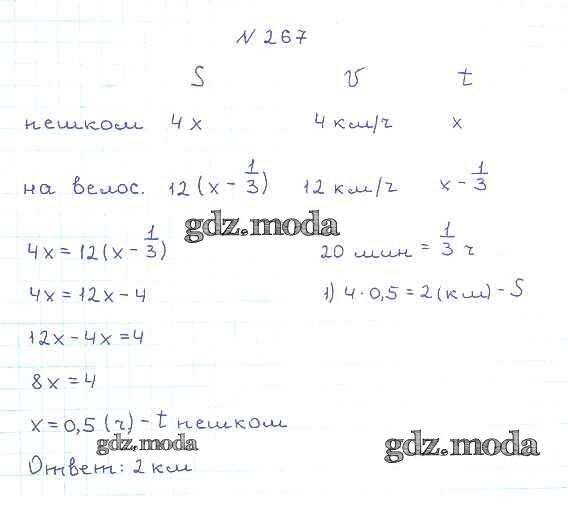 N 267
S v t
пешком 4x 4 км/ч x
на велос. 12(x - 1/3) 12 км/ч x - 1/3
gdz.moda
4x = 12(x - 1/3) 20 мин = 1/3 ч
4x = 12x - 4 1) 4 · 0,5 = 2 (км) - S
12x - 4x = 4
8x = 4
x = 0,5 (ч) - t пешком
gdz.moda gdz.moda
Ответ: 2 км